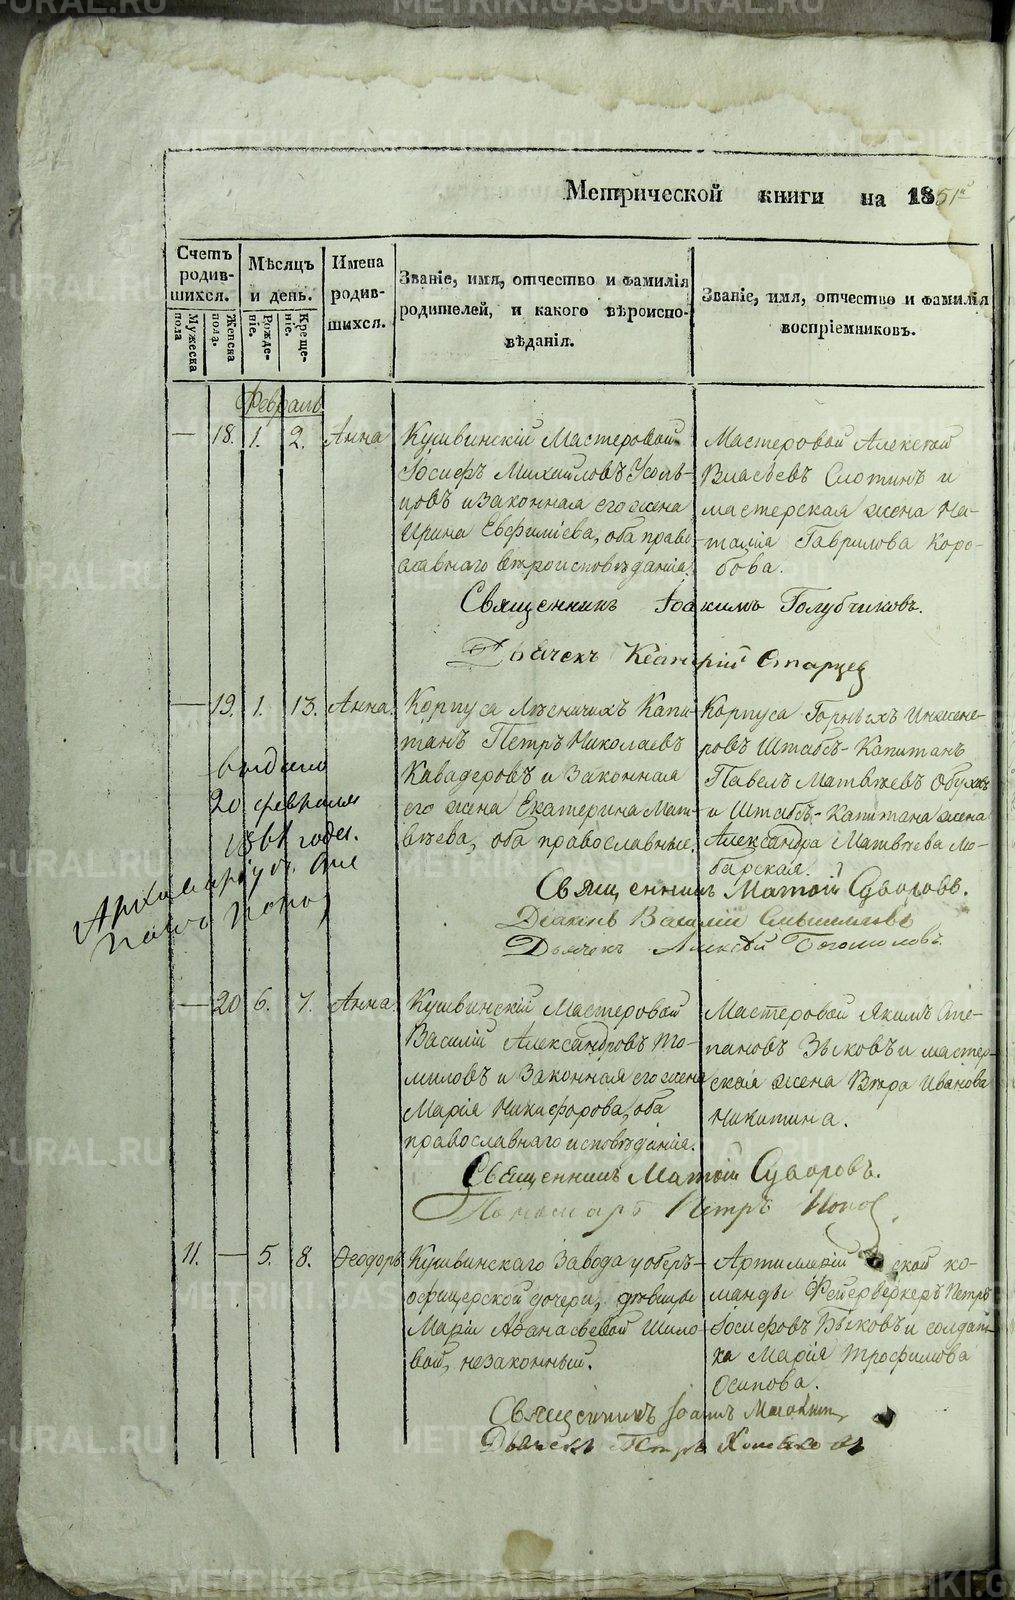 Метрической книги на 1851й
Счетъ родив-шихся.
Мужеска пола
Женска пола.
Мѣсяцъ и день.
Рожде-ніе.
Креще-ніе.
Имена родив-шихся.
Званіе, имя, отчество и фамилія
родителей, и какого вѣроиспо-
вѣданія.
Званіе, имя, отчество и фамилія
воспріемниковъ.
Февраль
— 18. 1. 2. Анна
Кушвинскій Мастеровой
Іосифъ Михайловъ Усоль-
цовъ и законная его жена
Ирина Евфиміева, оба право-
славнаго вѣроисповѣданія.
Мастеровой Алексѣй
Власьевъ Слотинъ и
мастерская жена На-
талія Гаврилова Коро-
бова.
Священникъ Іоакимъ Голубчиковъ.
Дьячекъ Старцев
— 19. 1. 13. Анна.
Корпуса Лѣсничихъ Капи-
танъ Петръ Николаевъ
Кавадеровъ и законная
его жена Екатерина Мат-
вѣева, оба православные.
Корпуса Горныхъ Инжене-
ровъ Штабсъ-Капитанъ
Павелъ Матвѣевъ Обуховъ
и Штабсъ-Капитана жена
Александра Матвѣева Лю-
барская.
выдано
20 февраля
года.
Священникъ Матѳій Суворовъ.
Діаконъ Василій
Дьячекъ Алексѣй Богомоловъ.
— 20 6. 7. Анна.
Кушвинскій Мастеровой
Василій Александровъ То-
миловъ и законная его жена
Марія Никифорова, оба
православнаго исповѣданія.
Мастеровой Якимъ Сте-
пановъ Зыковъ и мастер-
ская жена Вѣра Иванова
Никитина.
Священникъ Матѳій Суворовъ.
Пономарь Петръ Попов.
11. — 5. 8. Ѳеодоръ
Кушвинскаго Завода у оберъ-
офицерской дочери, дѣвицы
Маріи Аѳанасьевой Шило-
вой, незаконный.
Артиллерій ской ко-
манды Фейерверкеръ Петръ
Іосифовъ Быковъ и солдат-
ка Марія Трофимова
Осипова.
Священникъ Іоаннъ
Дьячекъ Петръ Хомяковъ
METRIKI.GASO-URAL.RU